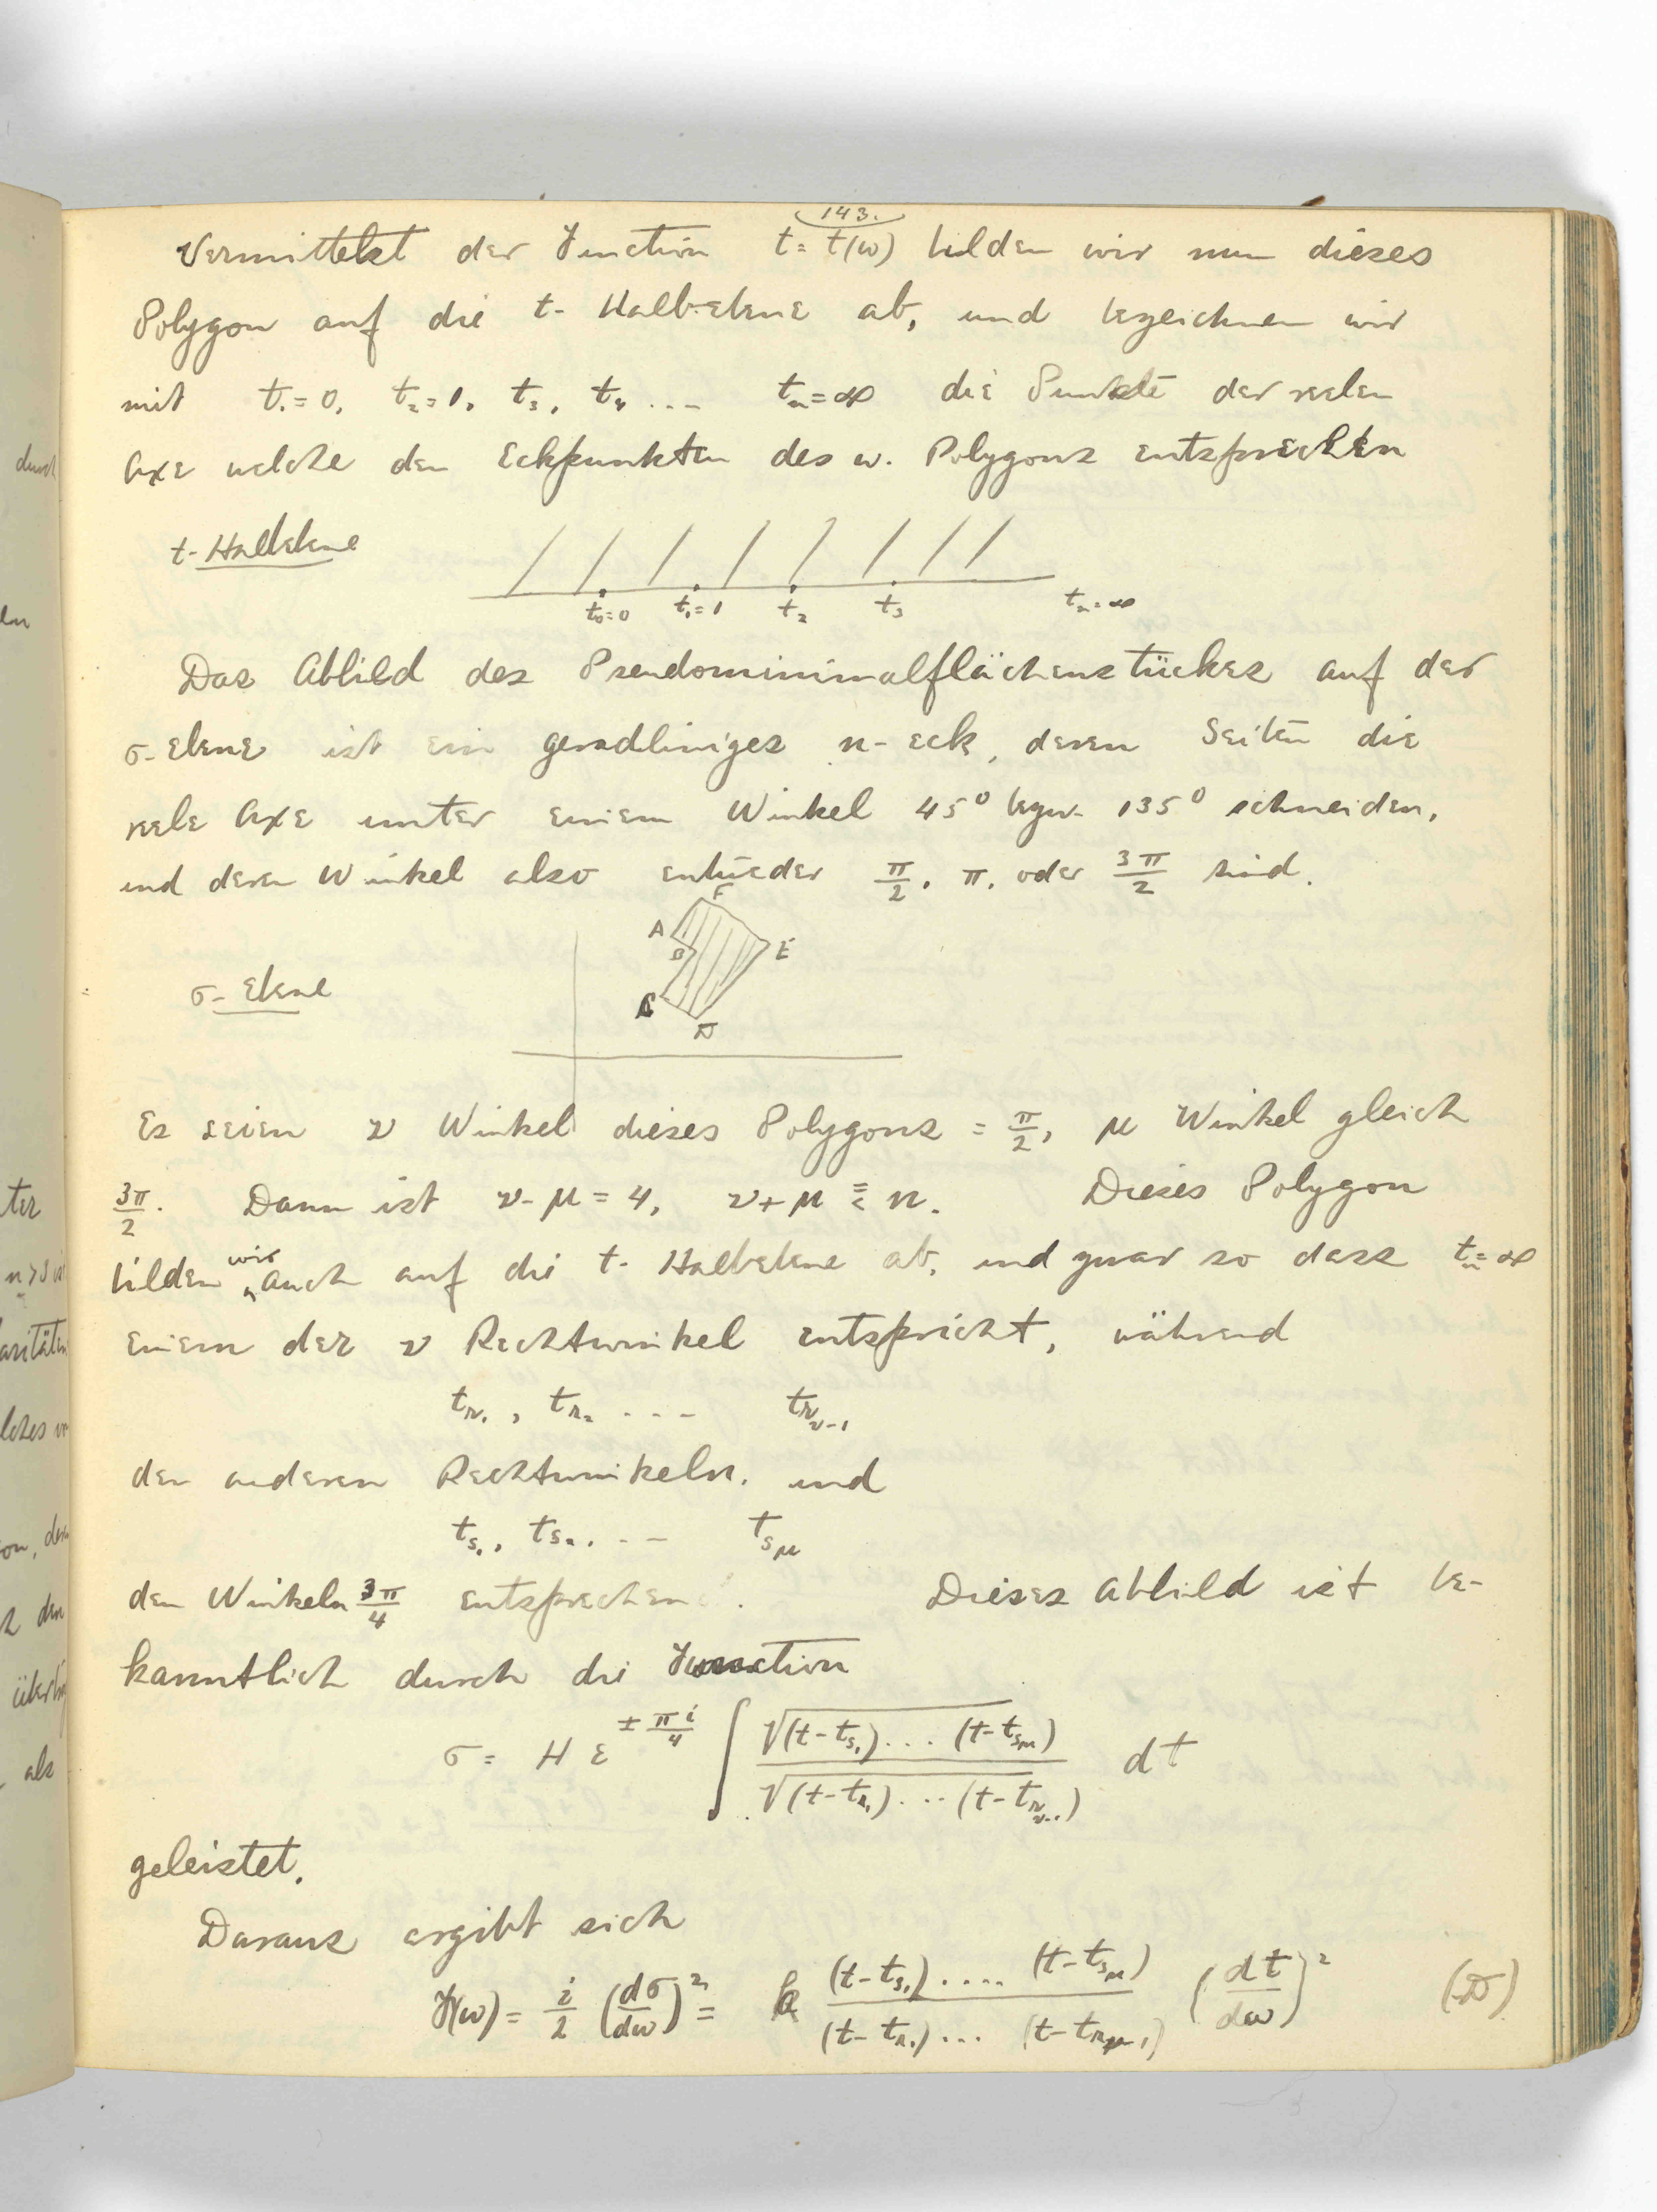 143.
Vermittelst der Function t = t(w) bilden wir nun dieses
Polygon auf die t- Halbebene ab, und bezeichnen wir
mit t₁ = 0, t₂ = 1, t₃, t₄ ... tₙ = ∞ die Punkte der reelen
Axe welche den Eckpunkten des w. Polygons entsprechen
t- Halbebene
t₀ = 0 t₁ = 1 t₂ t₃ tₙ = ∞
Das Abbild des Pseudominimalflächenstückes auf der
σ- Ebene ist ein geradliniges n- eck, deren Seiten die
reele Axe unter einem Winkel 45° bezw. 135° schneiden,
und deren Winkel also entweder π/2, π, oder 3π/2 sind.
F
A
B
E
σ- Ebene
C
D
Es seien ν Winkel dieses Polygons = π/2, μ Winkel gleich
3π/2. Dann ist ν - μ = 4, ν + μ ≦ n. Dieses Polygon
bilden wir auch auf die t- Halbebene ab, und zwar so dass tₙ = ∞
einem der ν Rechtwinkel entspricht, während
t_{r₁}, t_{r₂} ... t_{r_{ν-1}}
den anderen Rechtwinkeln, und
t_{s₁}, t_{s₂}, ... t_{s_μ}
den Winkeln 3π/4 entsprechen. Dieses Abbild ist be-
kanntlich durch die Function
σ = H e^{± πi/4} ∫ √(t-t_{s₁}) ... (t-t_{s_μ}) / √(t-t_{r₁}) ... (t-t_{r_{ν-1}}) dt
geleistet.
Daraus ergibt sich
F(w) = i/2 (dσ/dw)² = k (t-t_{s₁}) .... (t-t_{s_μ}) / (t-t_{r₁}) ... (t-t_{r_{μ-1}}) (dt/dw)² (D)